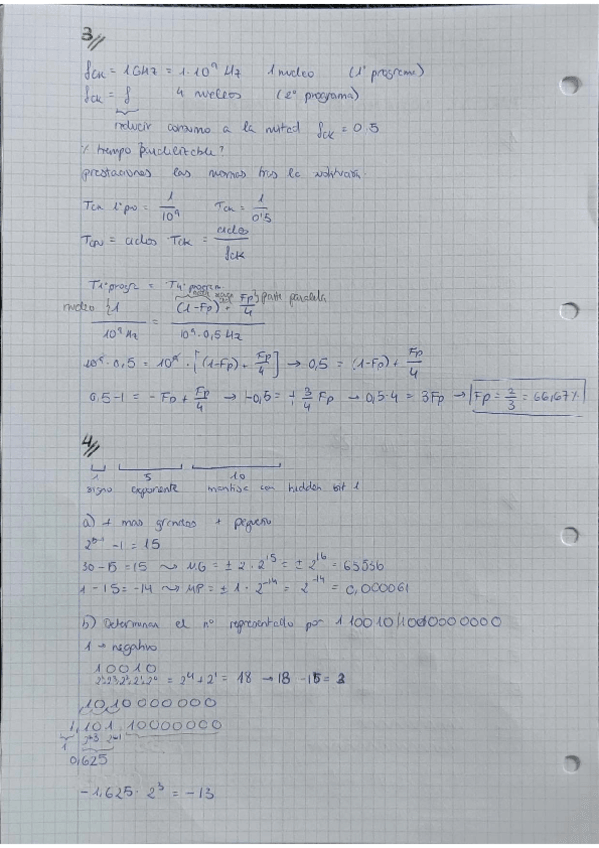 3//
fck = 1GHz = 1·10⁹ Hz 1 nucleo (1º programa)
fck = f 4 nucleos (2º programa)
reducir consumo a la mitad fck = 0,5
% tiempo paralelizable?
prestaciones las mismas tras la
Tck 1º pro = 1/10⁹ Tck = 1/0'5
Tcpu = ciclos · Tck = ciclos/fck
T1ºprogr = T4ºprogra
nucleo {1 / 10⁹ Hz = (1-Fp) + Fp/4 } parte paralela / 10⁹·0,5 Hz
10⁹·0,5 = 10⁹ · [(1-Fp) + Fp/4] → 0,5 = (1-Fp) + Fp/4
0,5-1 = -Fp + Fp/4 → -0,5 = - 3/4 Fp → 0,5·4 = 3Fp → Fp = 2/3 = 66,67%
4//
1 5 10
signo exponente mantisa con hidden bit 1
a) + mas grandes + pequeño
2⁵⁻¹ -1 = 15
30-15 = 15 ⇝ MG = ± 2 · 2¹⁵ = ± 2¹⁶ = 65536
1-15 = -14 ⇝ MP = ± 1 · 2⁻¹⁴ = 2⁻¹⁴ = 0,000061
b) Determinar el nº representado por 1 10010 1010000000
1 → negativo
10010
2⁴ 2³ 2² 2¹ 2⁰ = 2⁴ + 2¹ = 18 → 18 - 15 = 3
1010000000
1,101,10000000
0,625
-1,625 · 2³ = -13